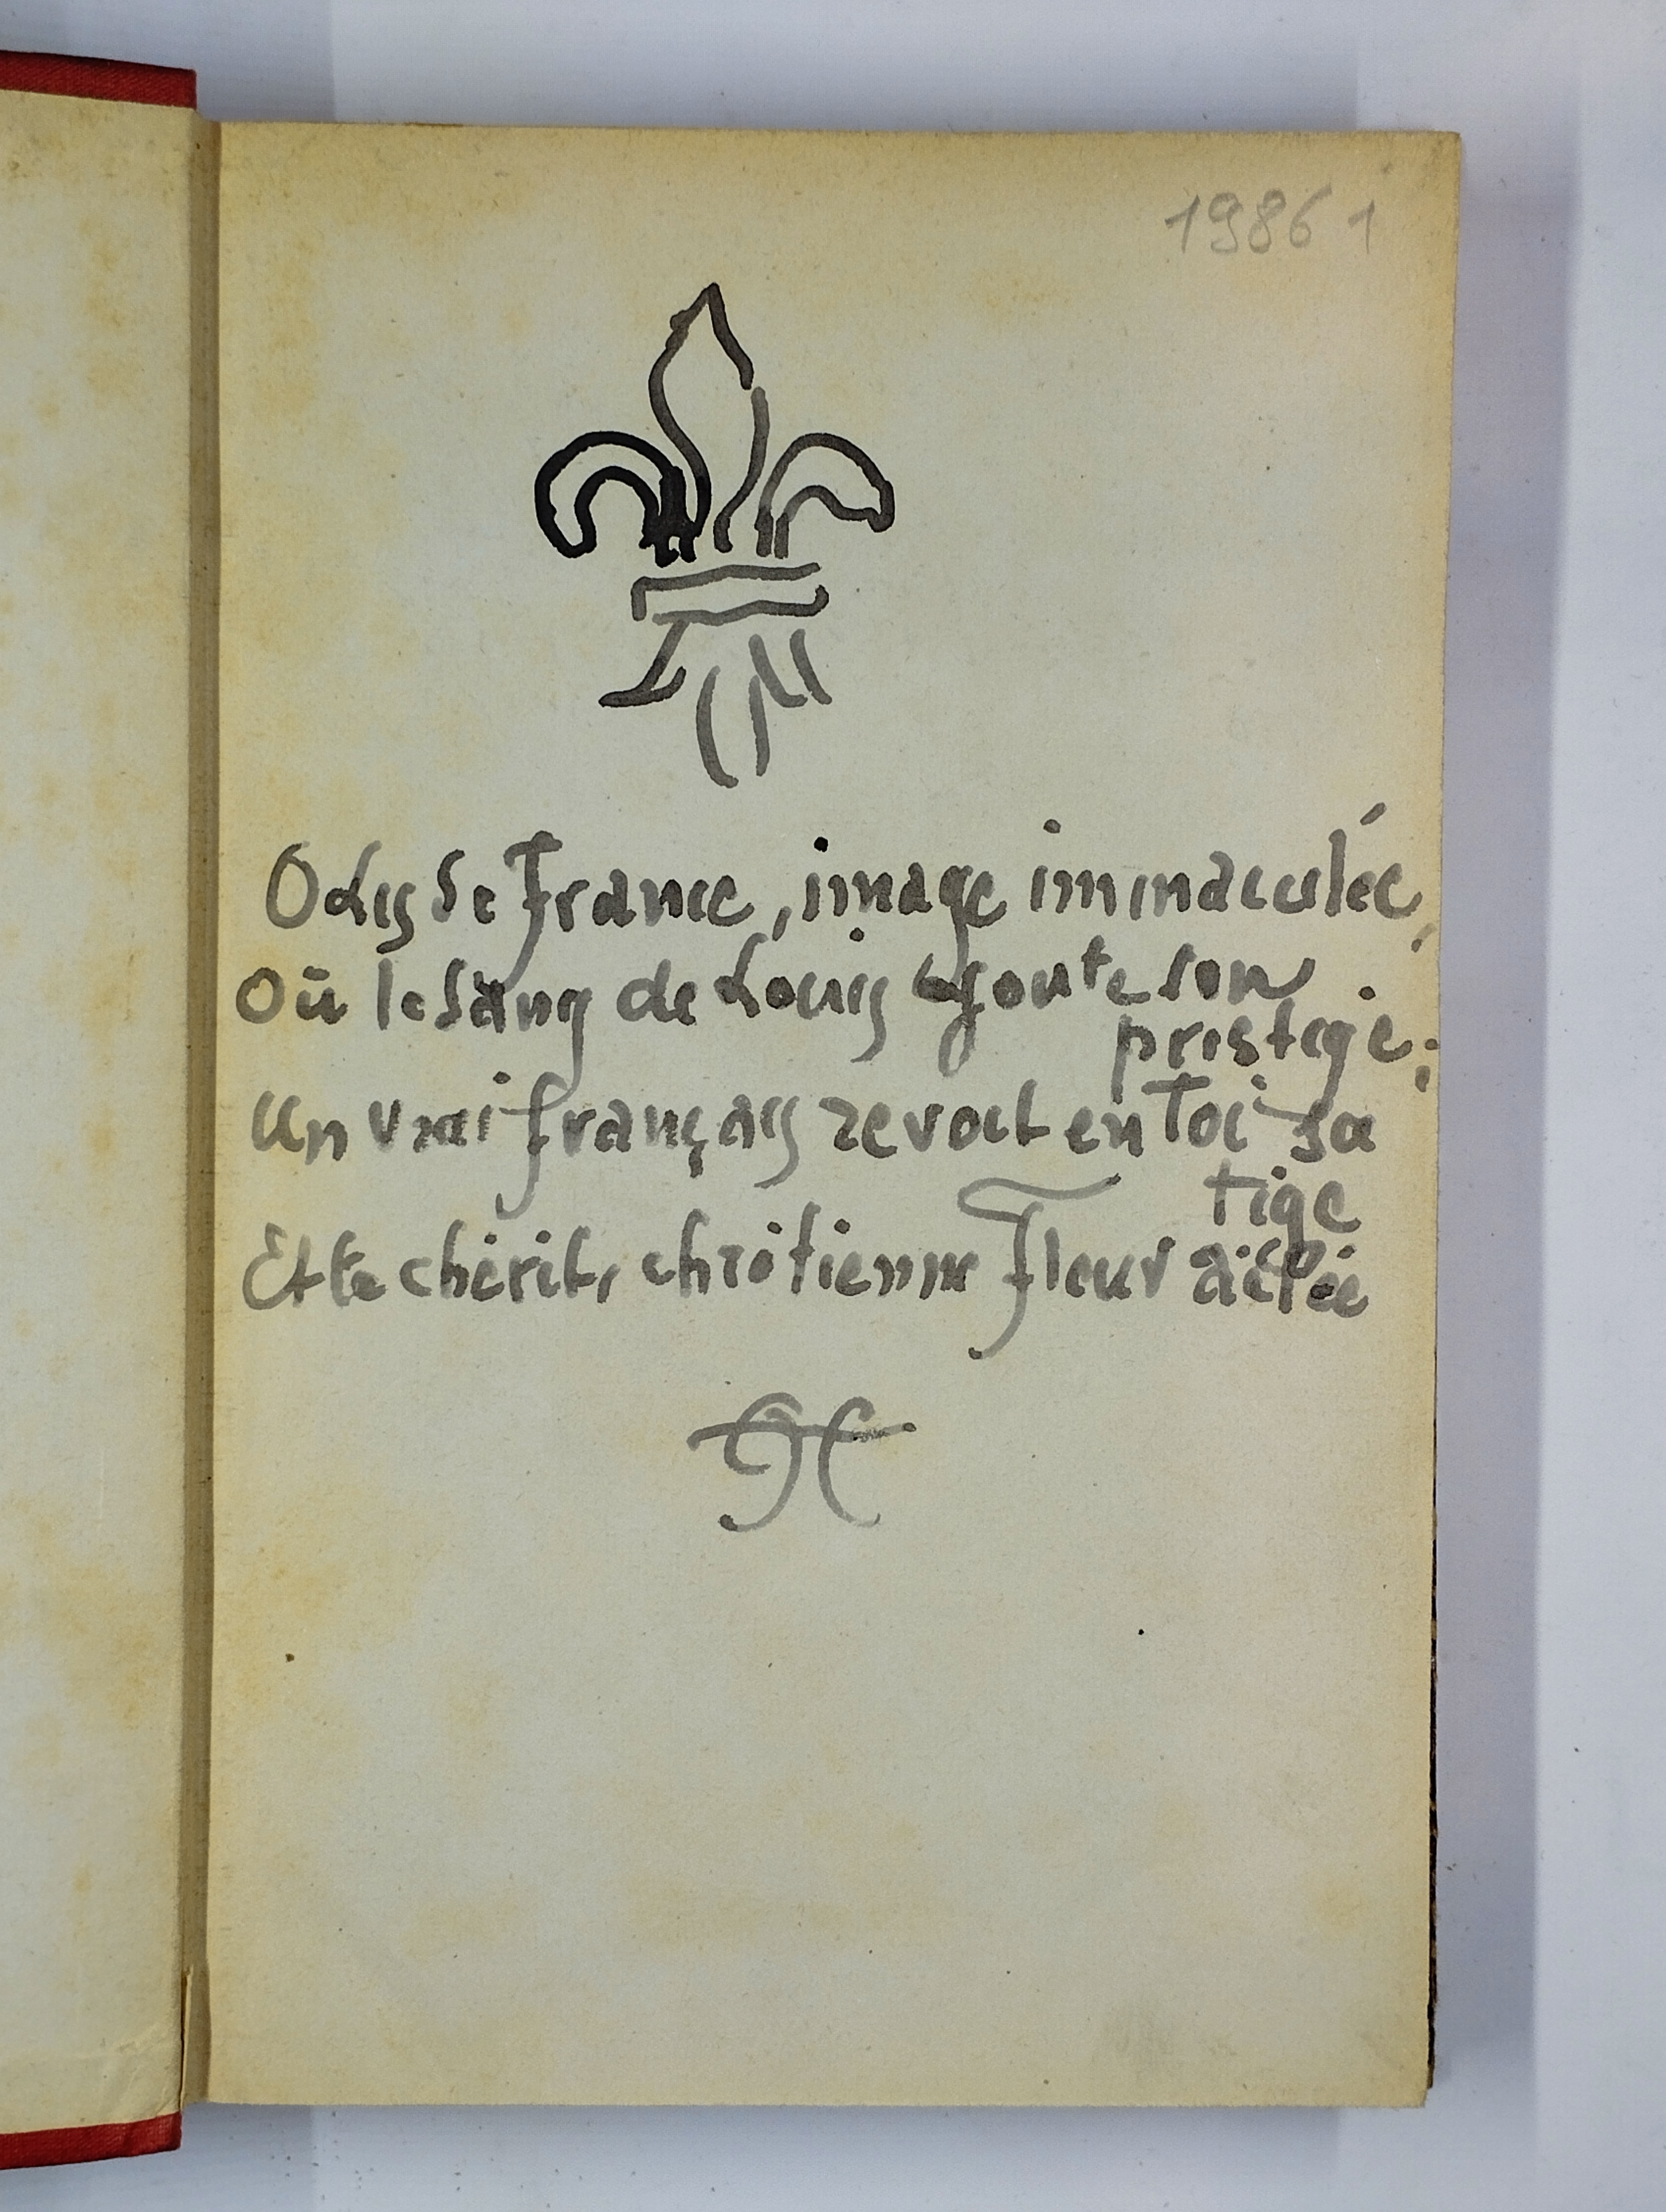 1986 1
O Lys de France, image immaculée,
Où le sang de Louis ajoute son
prestige:
Un vrai français revoit en Toi sa
tige
Et te chérit, chrétienne Fleur ailée